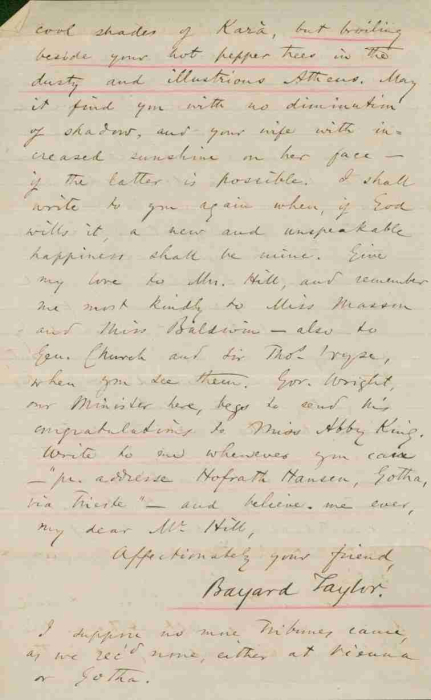 cool shades of Kara, but broiling
beside your hot pepper trees in the
dusty and illustrious Athens. May
it find you with no diminution
of shadow, and your wife with in-
creased sunshine on her face —
if the latter is possible. I shall
write to you again when, if God
wills it, a new and unspeakable
happiness shall be mine. Give
my love to Mrs. Hill, and remember
me most kindly to Miss Masson
and Miss Baldwin — also to
Gen. Church and Sir Thos. Wyse,
when you see them. Gov. Wright,
our Minister here, begs to send his
congratulations to Miss Abby King.
Write to me whenever you can
— "per addresse Hofrath Hansen, Gotha,
via Trieste" — and believe me ever,
my dear Mr. Hill,
Affectionately your friend,
Bayard Taylor.
I suppose no more Tribunes came,
as we rec'd none, either at Vienna
or Gotha.